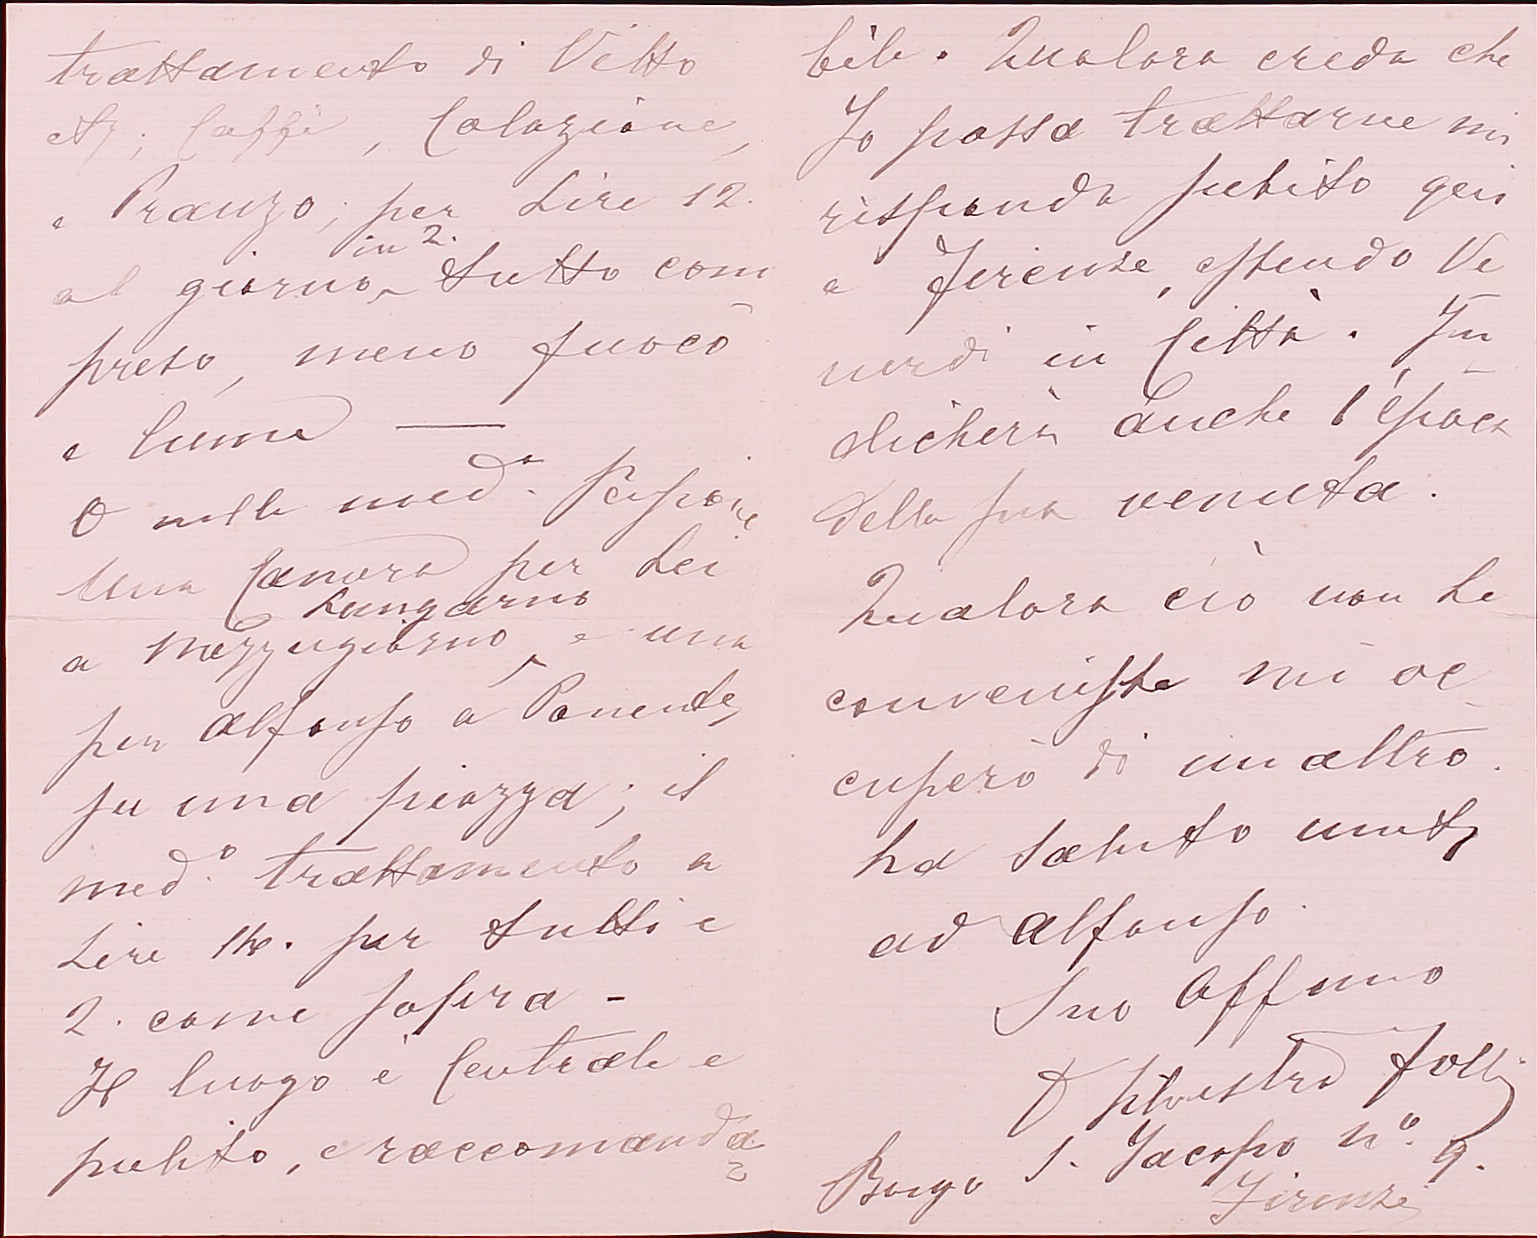 trattamento di Vitto
etc; Caffè, Colazione,
e Pranzo; per Lire 12.
al giorno in 2. tutto com
preso, meno fuoco
e lume —
O nella med.a Pensione
una Camera per Lei
a Mezzogiorno Lungarno e una
per Alfonso a Ponente,
su una piazza; il
med.o trattamento a
Lire per tutti e
2. come sopra -
Il luogo è Centrale e
pulito, e raccomanda
bile. Qualora creda che
Io possa trattarne mi
risponda subito qui
a Firenze, essendo Ve
nerdì in Città. In
dicherà anche l'época
della sua venuta.
Qualora ciò non Le
convenisse mi oc
cuperò di un altro.
La saluto unito
ad Alfonso.
Suo Affmo
D Silvestro Folli
Borgo S. Jacopo No. 9.
Firenze